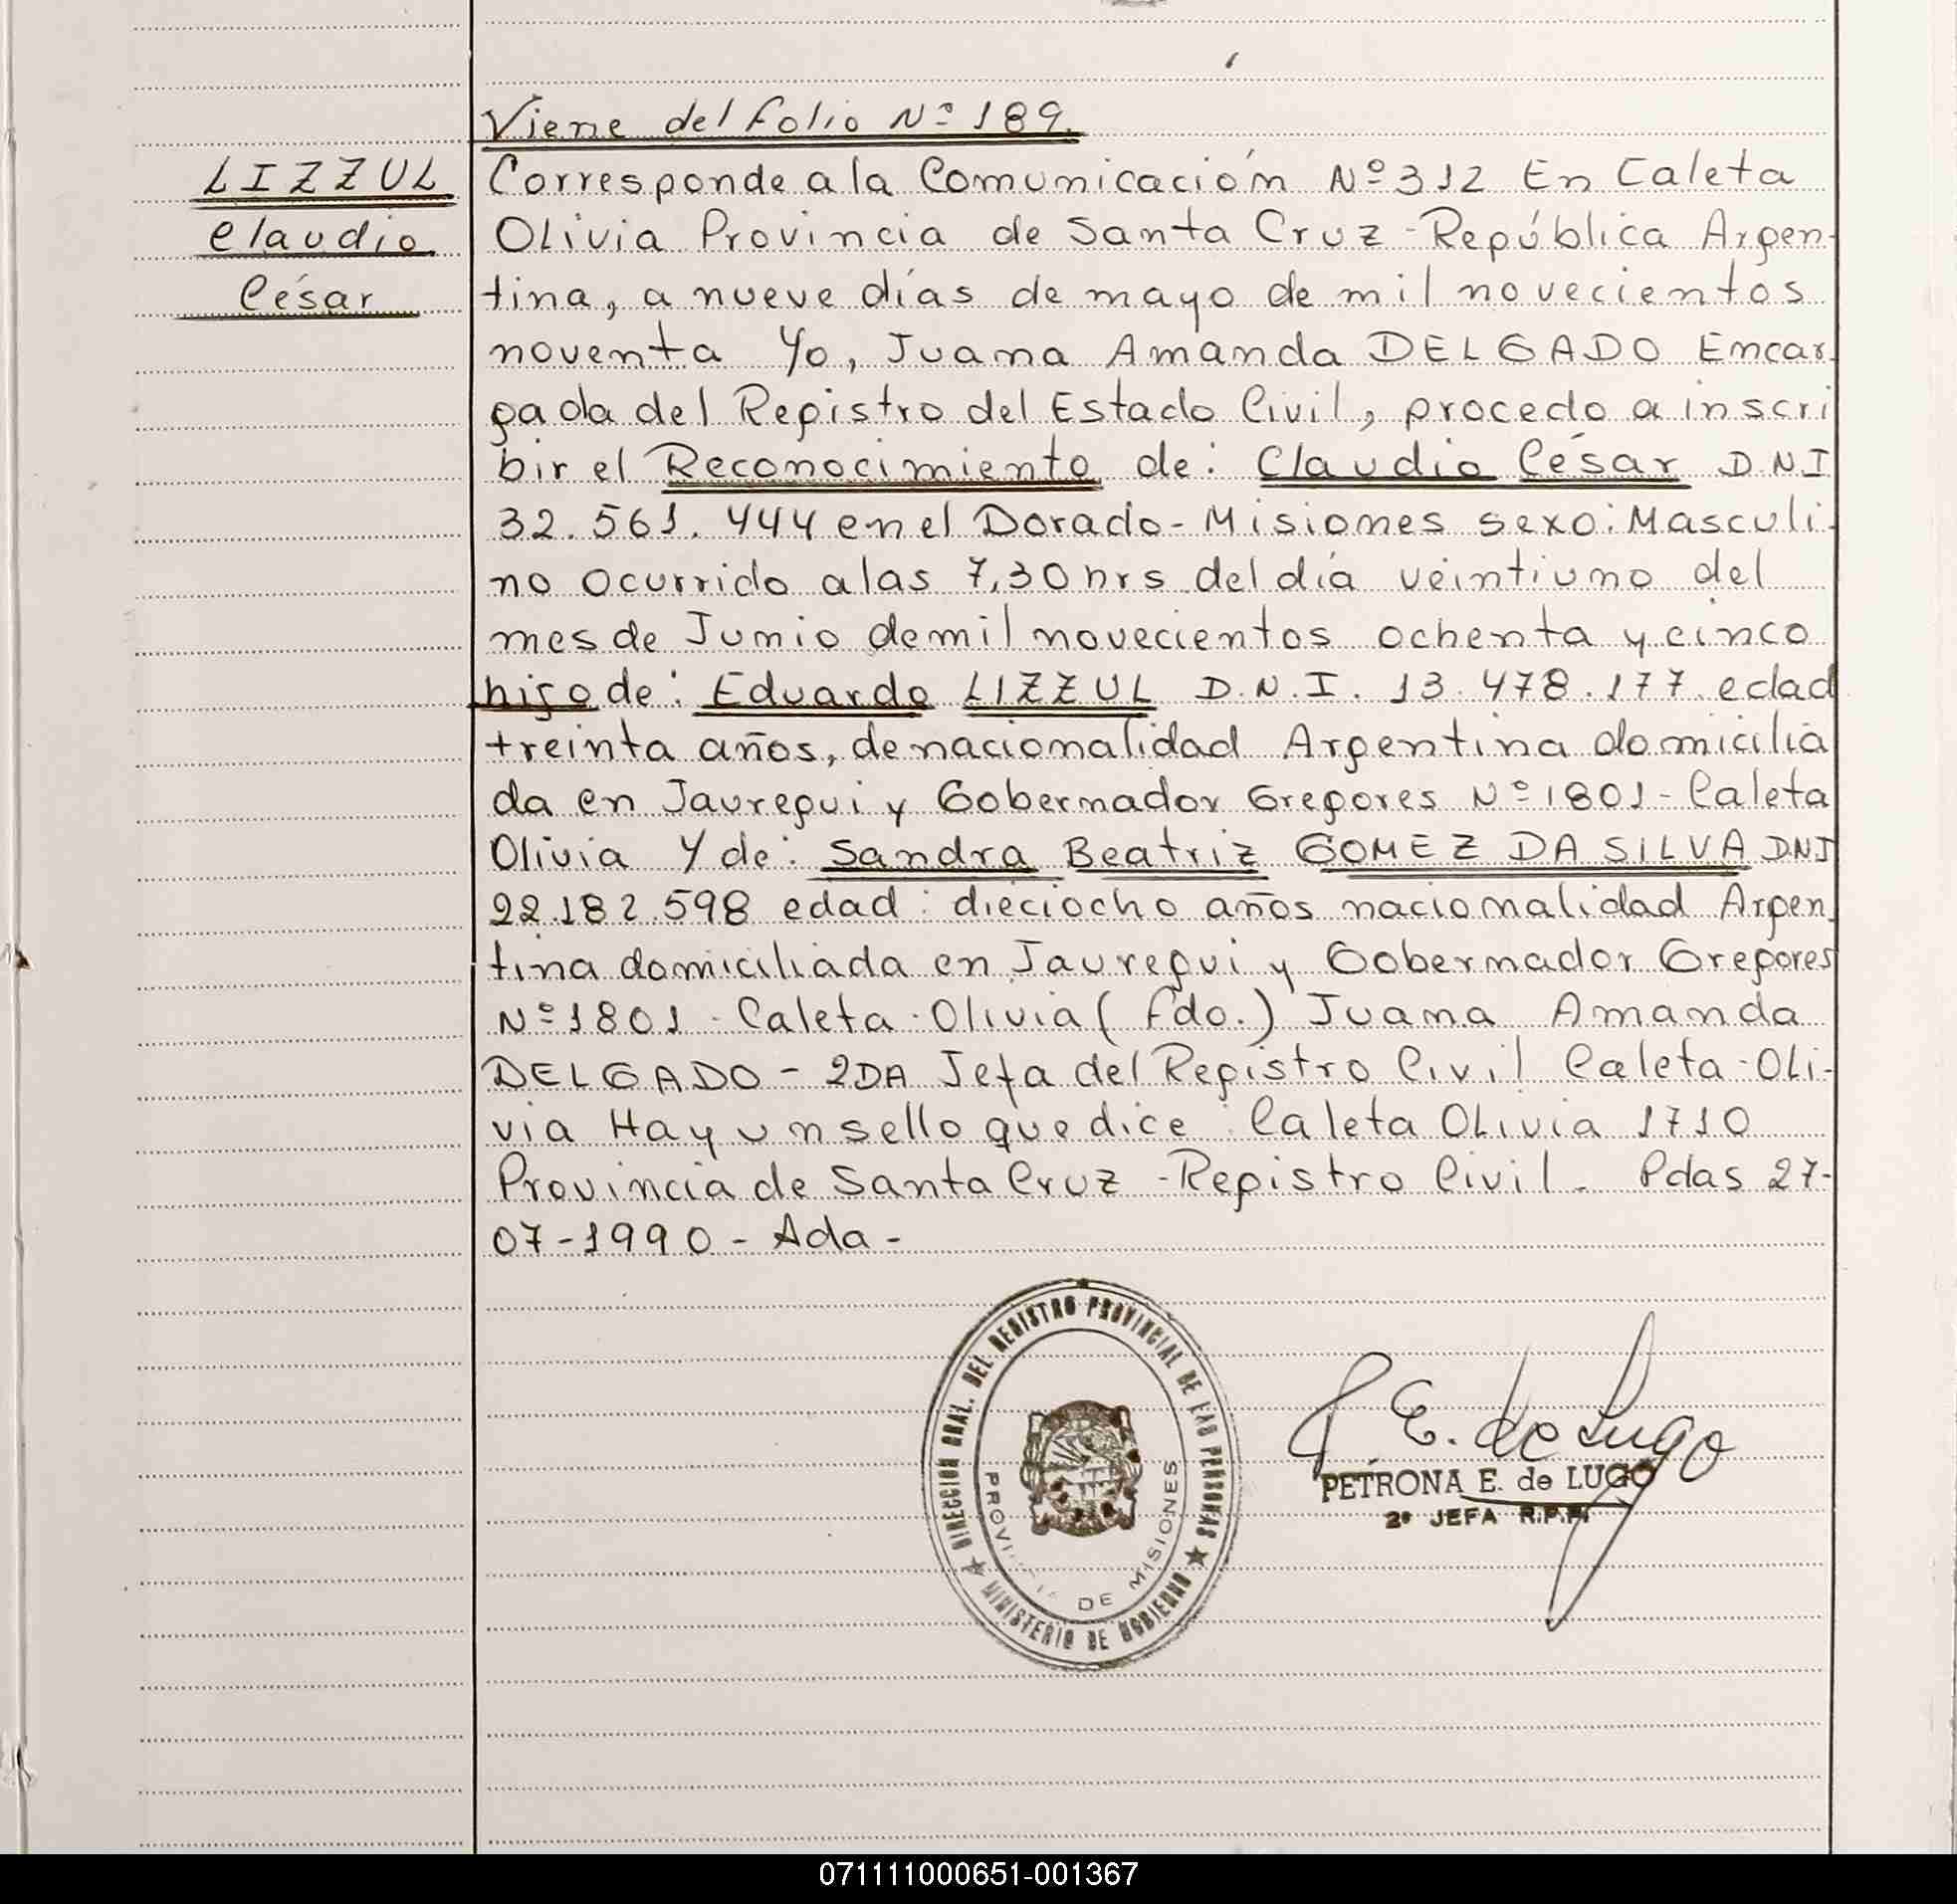 Viene del folio Nº 189.
LIZZUL
Claudio
César
Corresponde a la Comunicación Nº 312 En Caleta
Olivia Provincia de Santa Cruz - República Argen-
tina, a nueve días de mayo de mil novecientos
noventa Yo, Juana Amanda DELGADO Encar-
gada del Registro del Estado Civil, procedo a inscri
bir el Reconocimiento de: Claudio César D.N.I
32.561.444 en el Dorado - Misiones sexo: Masculi-
no ocurrido a las 7,30 hrs del día veintiuno del
mes de Junio de mil novecientos ochenta y cinco
hijo de: Eduardo LIZZUL D.N.I. 13.478.177 edad
treinta años, de nacionalidad Argentina domicilia
da en Jauregui y Gobernador Gregores Nº 1801 - Caleta
Olivia Y de: Sandra Beatriz GOMEZ DA SILVA DNI
22.182.598 edad: dieciocho años nacionalidad Argen-
tina domiciliada en Jauregui y Gobernador Gregores
Nº 1801 - Caleta - Olivia (fdo.) Juana Amanda
DELGADO - 2DA Jefa del Registro Civil Caleta - Oli-
via Hay un sello que dice: Caleta Olivia 1710
Provincia de Santa Cruz - Registro Civil - Pdas 27-
07-1990 - Ada -
DIRECCION GRAL. DEL REGISTRO PROVINCIAL DE LAS PERSONAS
MINISTERIO DE GOBIERNO
PROVINCIA DE MISIONES
P E. de Lugo
PETRONA E. de LUGO
2º JEFA R.P.P.
071111000651-001367